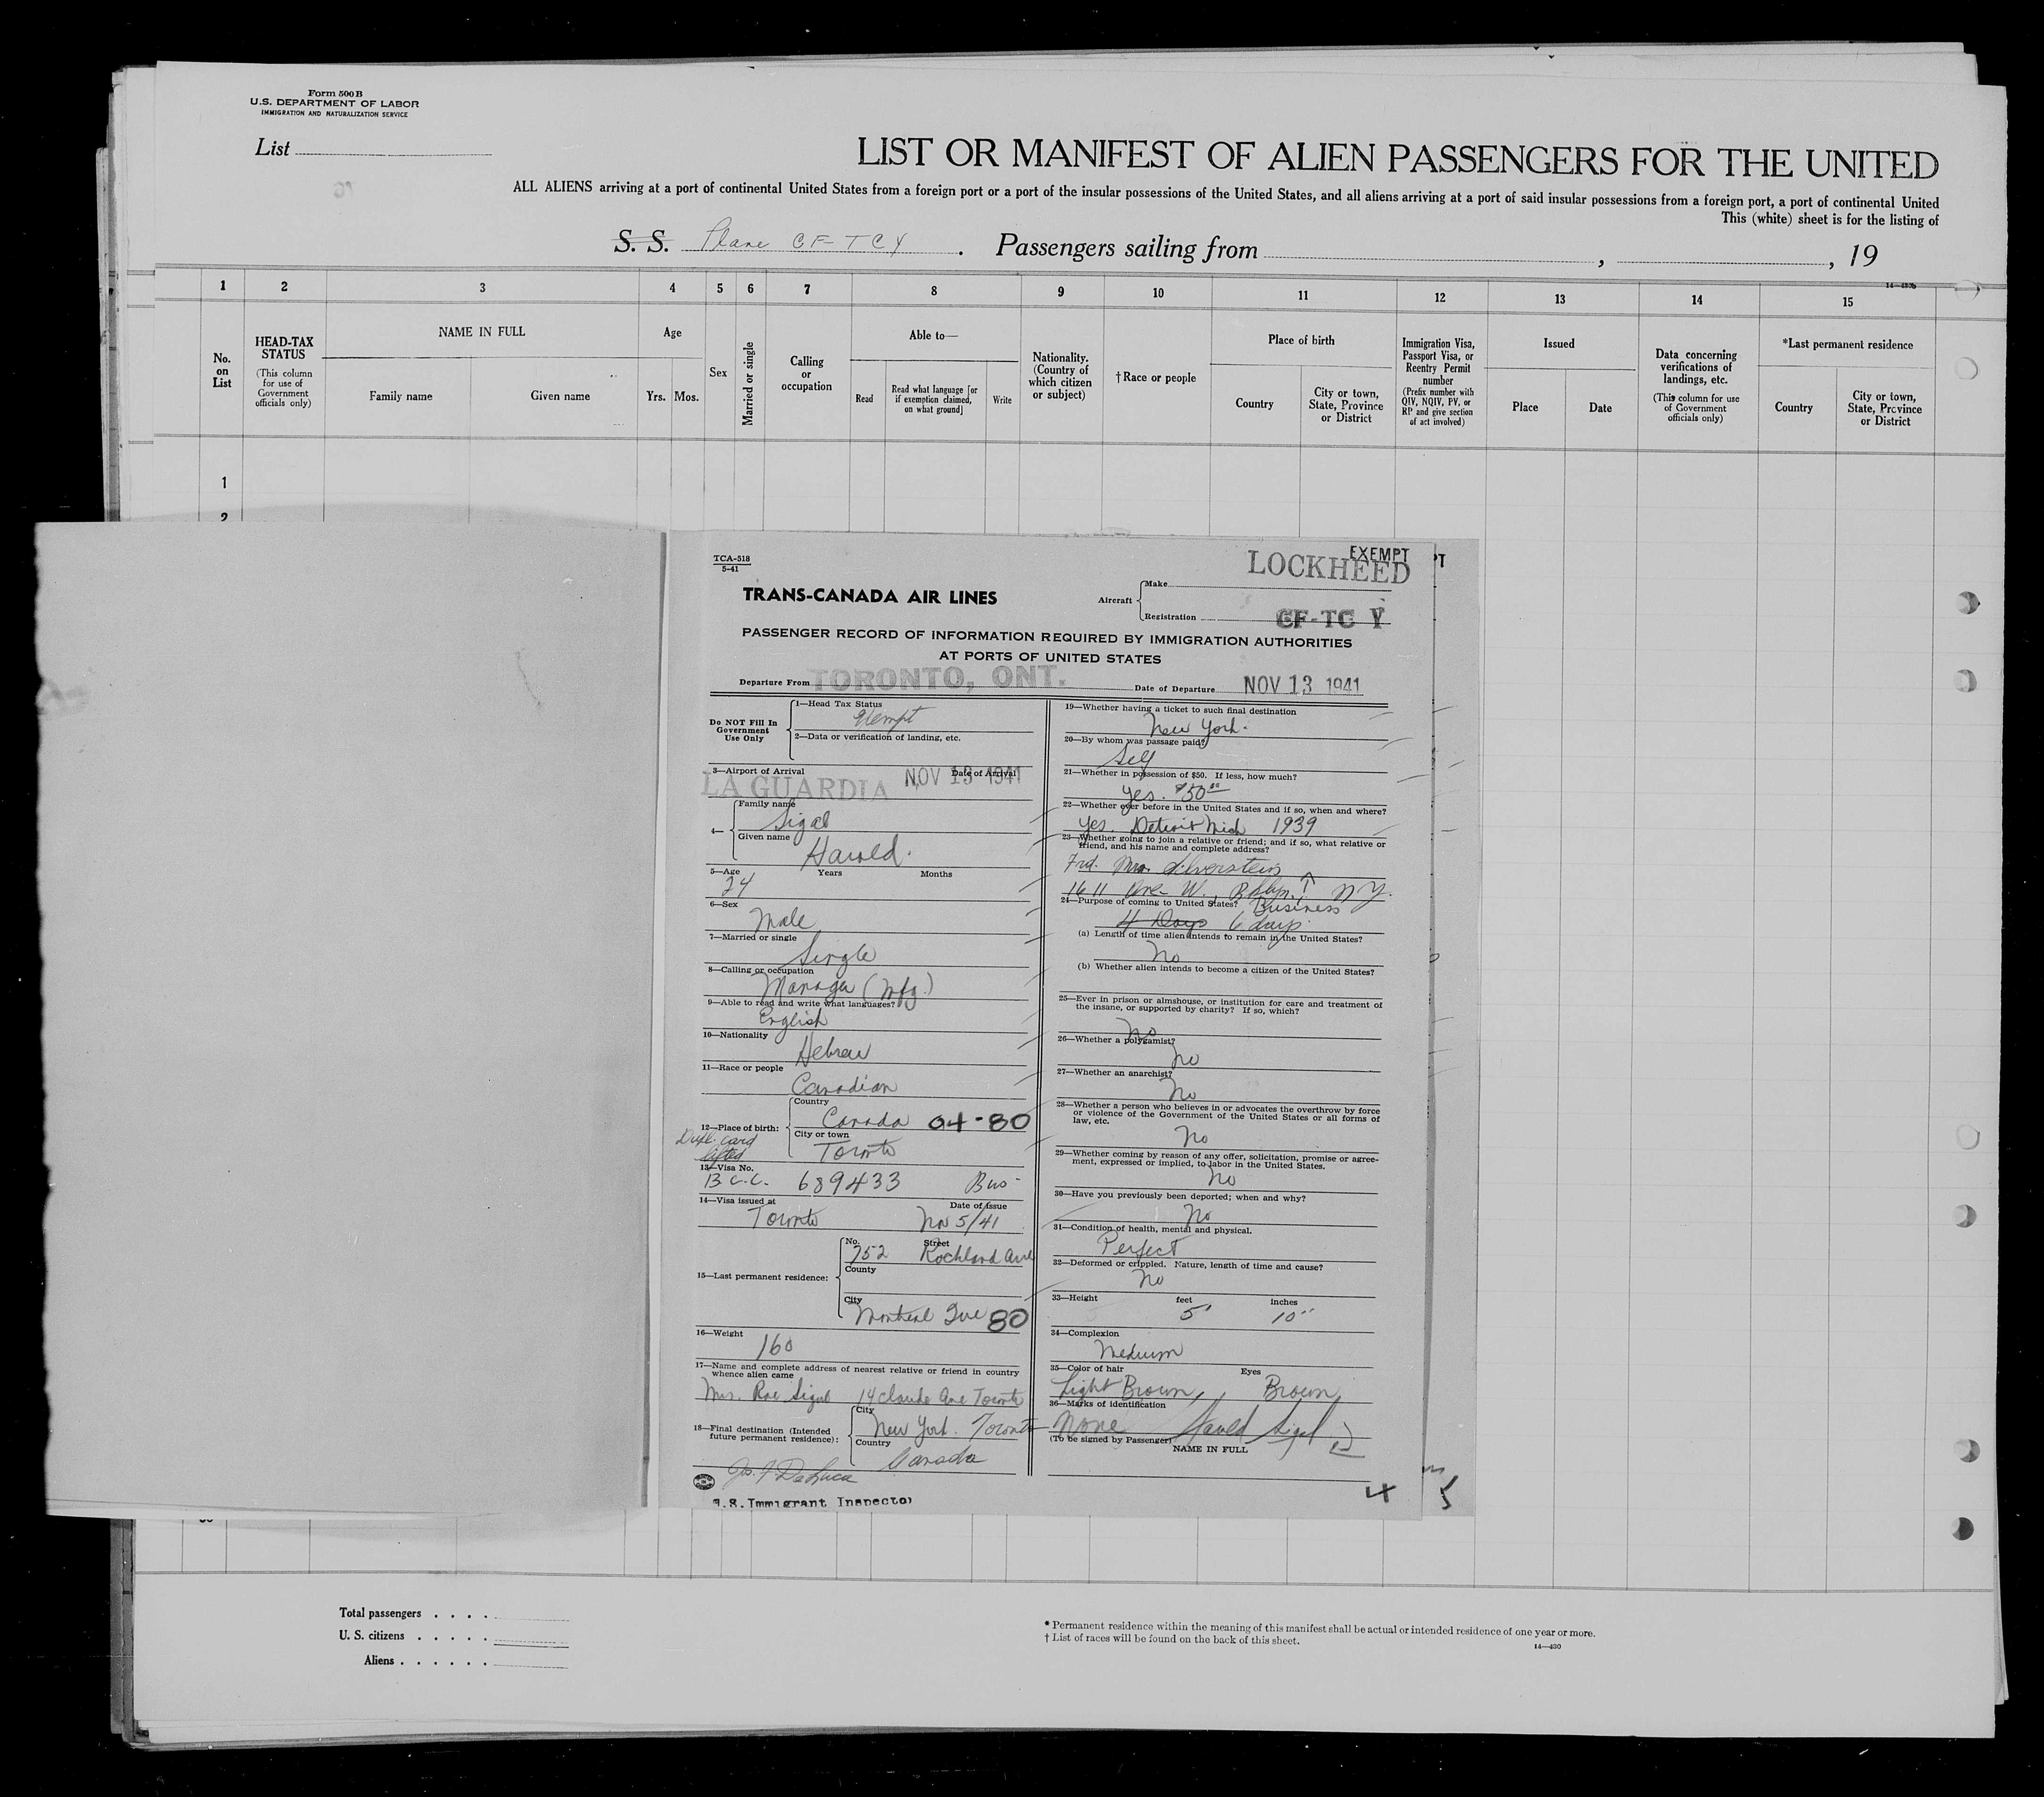 Form 500 B
U.S. DEPARTMENT OF LABOR
IMMIGRATION AND NATURALIZATION SERVICE
List
LIST OR MANIFEST OF ALIEN PASSENGERS FOR THE UNITED
ALL ALIENS arriving at a port of continental United States from a foreign port or a port of the insular possessions of the United States, and all aliens arriving at a port of said insular possessions from a foreign port, a port of continental United
This (white) sheet is for the listing of
S. S. Plane CF-TCY. Passengers sailing from , , 19
14—430b
1 2 3 4 5 6 7 8 9 10 11 12 13 14 15
No. on List
HEAD-TAX STATUS
(This column for use of Government officials only)
NAME IN FULL
Family name Given name
Age
Yrs. Mos.
Sex
Married or single
Calling or occupation
Able to—
Read
Read what language [or if exemption claimed, on what ground]
Write
Nationality. (Country of which citizen or subject)
†Race or people
Place of birth
Country
City or town, State, Province or District
Immigration Visa, Passport Visa, or Reentry Permit number
(Prefix number with QIV, NQIV, PV, or RP and give section of act involved)
Issued
Place Date
Data concerning verifications of landings, etc.
(This column for use of Government officials only)
*Last permanent residence
Country
City or town, State, Province or District
1
2
TCA-518
5-41
EXEMPT
LOCKHEED
TRANS-CANADA AIR LINES
Aircraft
Make
Registration CF-TC Y
PASSENGER RECORD OF INFORMATION REQUIRED BY IMMIGRATION AUTHORITIES
AT PORTS OF UNITED STATES
Departure From TORONTO, ONT. Date of Departure NOV 13 1941
Do NOT Fill In Government Use Only
1—Head Tax Status
Exempt
2—Data or verification of landing, etc.
3—Airport of Arrival Date of Arrival
LA GUARDIA NOV 13 1941
4—
Family name
Sigal
Given name
Harold.
5—Age Years Months
24
6—Sex
Male
7—Married or single
Single
8—Calling or occupation
Manager (Mfg.)
9—Able to read and write what languages?
English
10—Nationality
Hebrew
11—Race or people
Canadian
12—Place of birth:
Country
Canada 04-80
City or town
Toronto
Dupl. card
lifted
13—Visa No.
B.C.C. 689433 Bus
14—Visa issued at Date of Issue
Toronto Nov 5/41
15—Last permanent residence:
No. Street
752 Rochland Ave
County
City
Montreal Que 80
16—Weight
160
17—Name and complete address of nearest relative or friend in country whence alien came
Mrs. Rae Sigal 14 Claude Ave Toronto
18—Final destination (Intended future permanent residence):
City
New York. Toronto
Country
Canada
Jos. F. DeLuca
U.S. Immigrant Inspector
19—Whether having a ticket to such final destination
New York.
20—By whom was passage paid?
Self
21—Whether in possession of $50. If less, how much?
Yes. $50.00
22—Whether ever before in the United States and if so, when and where?
Yes. Detroit Mich 1939
23—Whether going to join a relative or friend; and if so, what relative or
friend, and his name and complete address?
Frd. Silverstein
1611 Ave W., Bklyn. N Y.
24—Purpose of coming to United States? Business
4 Days 6 days
(a) Length of time alien intends to remain in the United States?
No
(b) Whether alien intends to become a citizen of the United States?
25—Ever in prison or almshouse, or institution for care and treatment of
the insane, or supported by charity? If so, which?
No
26—Whether a polygamist?
No
27—Whether an anarchist?
No
28—Whether a person who believes in or advocates the overthrow by force
or violence of the Government of the United States or all forms of
law, etc.
No
29—Whether coming by reason of any offer, solicitation, promise or agree-
ment, expressed or implied, to labor in the United States.
No
30—Have you previously been deported; when and why?
No
31—Condition of health, mental and physical.
Perfect
32—Deformed or crippled. Nature, length of time and cause?
No
33—Height feet inches
5' 10"
34—Complexion
Medium
35—Color of hair Eyes
Light Brown, Brown
36—Marks of identification
None Harold Sigal
(To be signed by Passenger)
NAME IN FULL
4 5
Total passengers
U. S. citizens
Aliens
* Permanent residence within the meaning of this manifest shall be actual or intended residence of one year or more.
† List of races will be found on the back of this sheet.
14—430